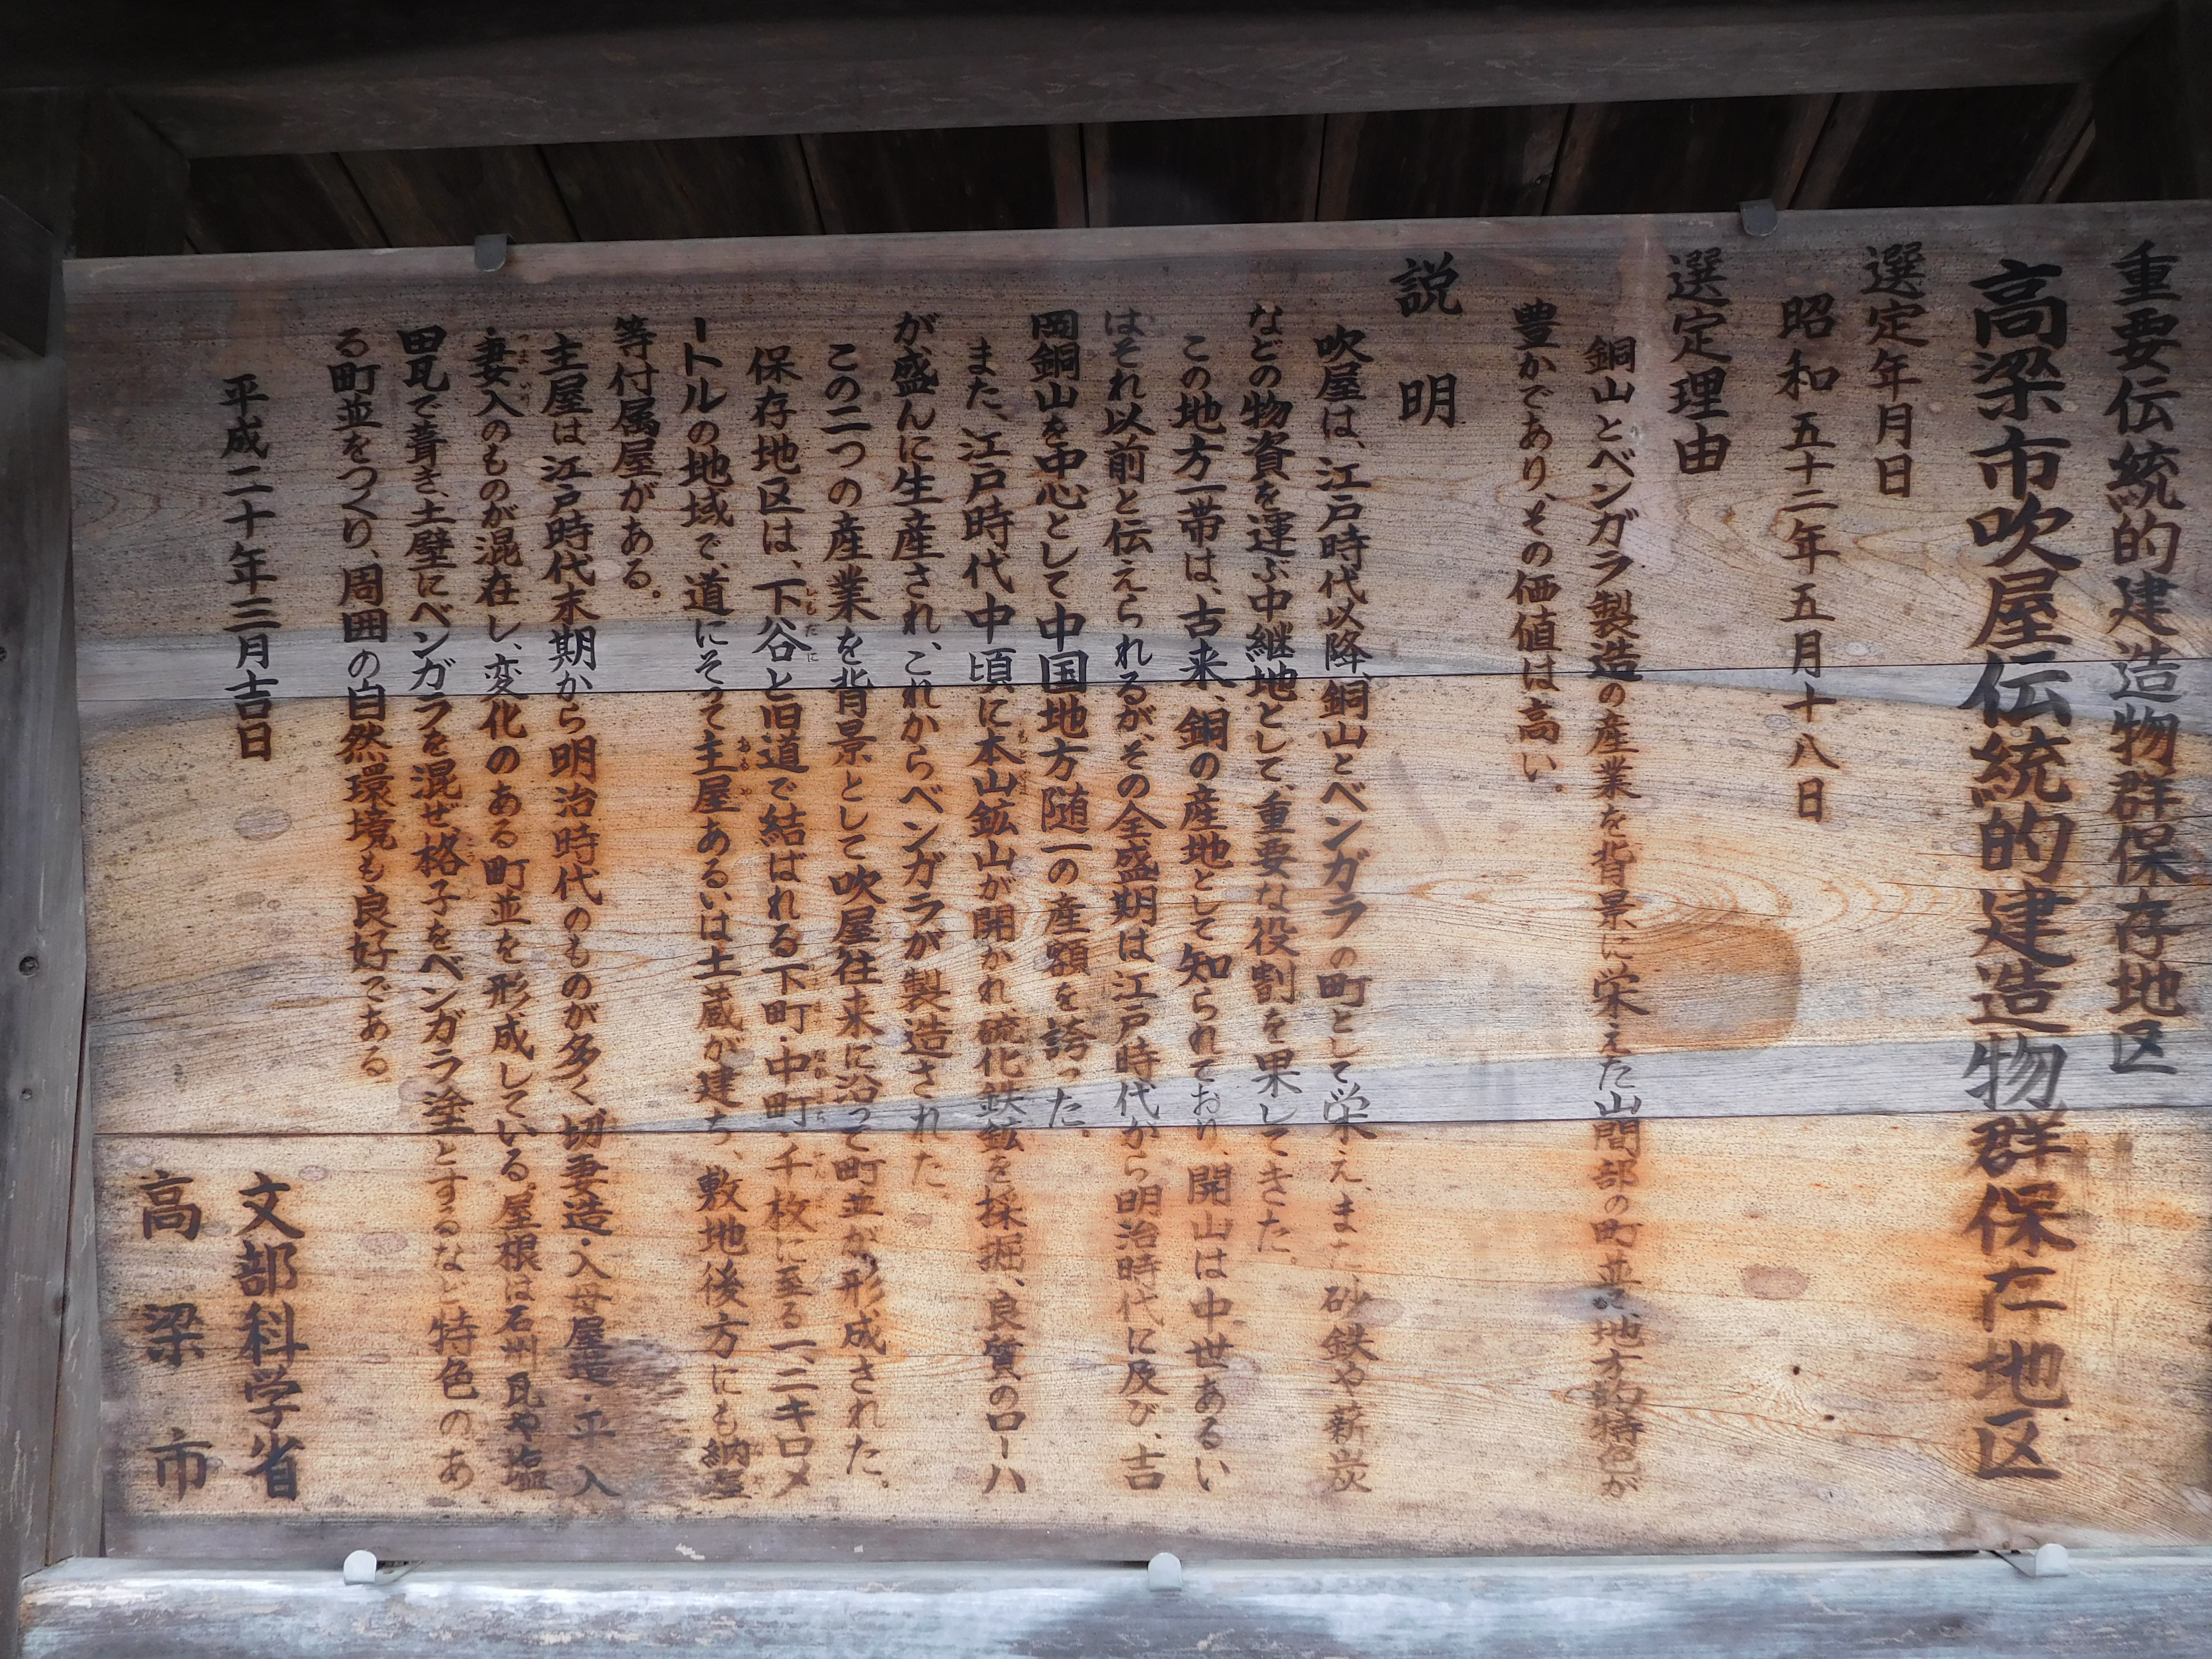 重要伝統的建造物群保存地区
高梁市吹屋伝統的建造物群保存地区
選定年月日
昭和五十二年五月十八日
選定理由
銅山とベンガラ製造の産業を背景に栄えた山間部の町並で、地方的特色が
豊かであり、その価値は高い。
説明
吹屋は、江戸時代以降、銅山とベンガラの町として栄え、また、砂鉄や薪炭
などの物資を運ぶ中継地として、重要な役割を果してきた。
この地方一帯は、古来、銅の産地として知られており、開山は中世あるい
はそれ以前と伝えられるが、その全盛期は江戸時代から明治時代に及び、吉
岡銅山を中心として中国地方随一の産額を誇った。
また、江戸時代中頃に本山鉱山が開かれ、硫化鉄鉱を採掘、良質のローハ
が、盛んに生産され、これからベンガラが製造された
この二つの産業を背景として吹屋往来に沿って町並が形成された。
保存地区は、下谷と旧道で結ばれる下町・中町・千枚に至る一、二キロメ
ートルの地域で、道にそって主屋あるいは土蔵が建ち、敷地後方にも納屋
等付属屋がある。
主屋は江戸時代末期から明治時代のものが多く、切妻造・入母屋造・平入
・妻入のものが混在し、変化のある町並を形成している。屋根は石州瓦や塩
田瓦で葺き、土壁にベンガラを混ぜ格子をベンガラ塗とするなど特色のあ
る町並をつくり、周囲の自然環境も良好である
平成二十年三月吉日
文部科学省
高梁市